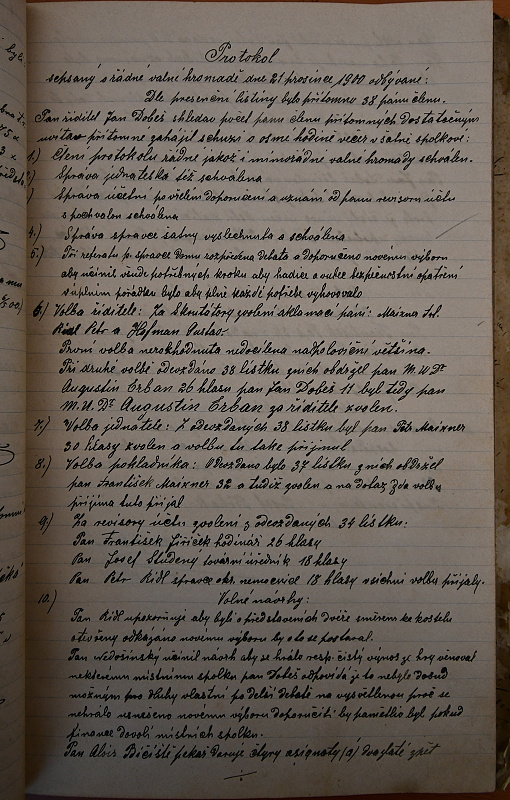 Protokol
sepsaný s řádné valné hromadě dne 21 prosince 1900 odbývané:
Dle presenční listiny bylo přítomno 38 panu členu.
Pan řiditel Jan Dobeš shledav počet panu členu přítomných dostatečným
uvítav přítomné zahájil schuzi o osmé hodině večer v šatně spolkové:
1.) Čtení protokolu řádné jakož i mimořádné valné hromady schválen.
Správa jednatelská též schválena
Správa účetní po vřelém doporučení a uznání od panu revisoru účtu
s pochvalou schválena
4.) Správa správce šatny vyslechnuta a schválena
5.) Při referátu p. správce domu rozpředena debata a doporučeno novému výboru
aby učinil všude potřebných kroku aby hadice a vubec bezpečnostní opatření
súplném pořádku bylo aby plně každé potřebě vyhovovalo
6.) Volba řiditele: Za skrutátory zvoleni aklamací páni: Maixna
Ridl Petr a Hofman Gustav.
První volba nerozhodnuta nedocílena nadpoloviční většina.
Při druhé volbě odevzdáno 38 lístku z nich obdržel pan M.U.Dr
Augustin Erban 26 hlasu pan Jan Dobeš 11 byl tedy pan
M.U.Dr. Augustin Erban za řiditele zvolen.
7.) Volba jednatele: Z odevzdaných 38 lístku byl pan Petr Maixner
30 hlasy zvolen a volbu tu také přijmul
8.) Volba pokladníka: Odevzdáno bylo 37 lístku z nich obdržel
pan František Maixner 32 a tudíž zvolen a na dotaz zda volbu
přijímá tuto přijal
9.) Za revisory účtu zvoleni z odevzdaných 34 lístku:
Pan František Jiříček hodinář 26 hlasy
Pan Josef Studený tovární úředník 18 hlasy
Pan Petr Rídl správce okr. nemocnice 18 hlasy všichni volbu přijali.
10.) Volné návrhy:
Pan Rídl upozorňuje aby byli o představeních dvéře směrem ke kostelu
otevřeny odkázáno novému výboru by o to se postaral.
Pan Nedošínský učinil návrh aby se hrálo resp. čistý výnos ze hry věnoval
některému místnímu spolku pan Dobeš odpovídá že to nebylo dosud
možným pro dluhy vlastní po delší debatě na vysvětlenou proč se
nehrálo usnešeno novému výboru doporučiti by pamětliv byl pokud
finance dovolí místních spolku.
Pan Alois pekař daruje čtyry asignáty (á) dvazlaté zpět